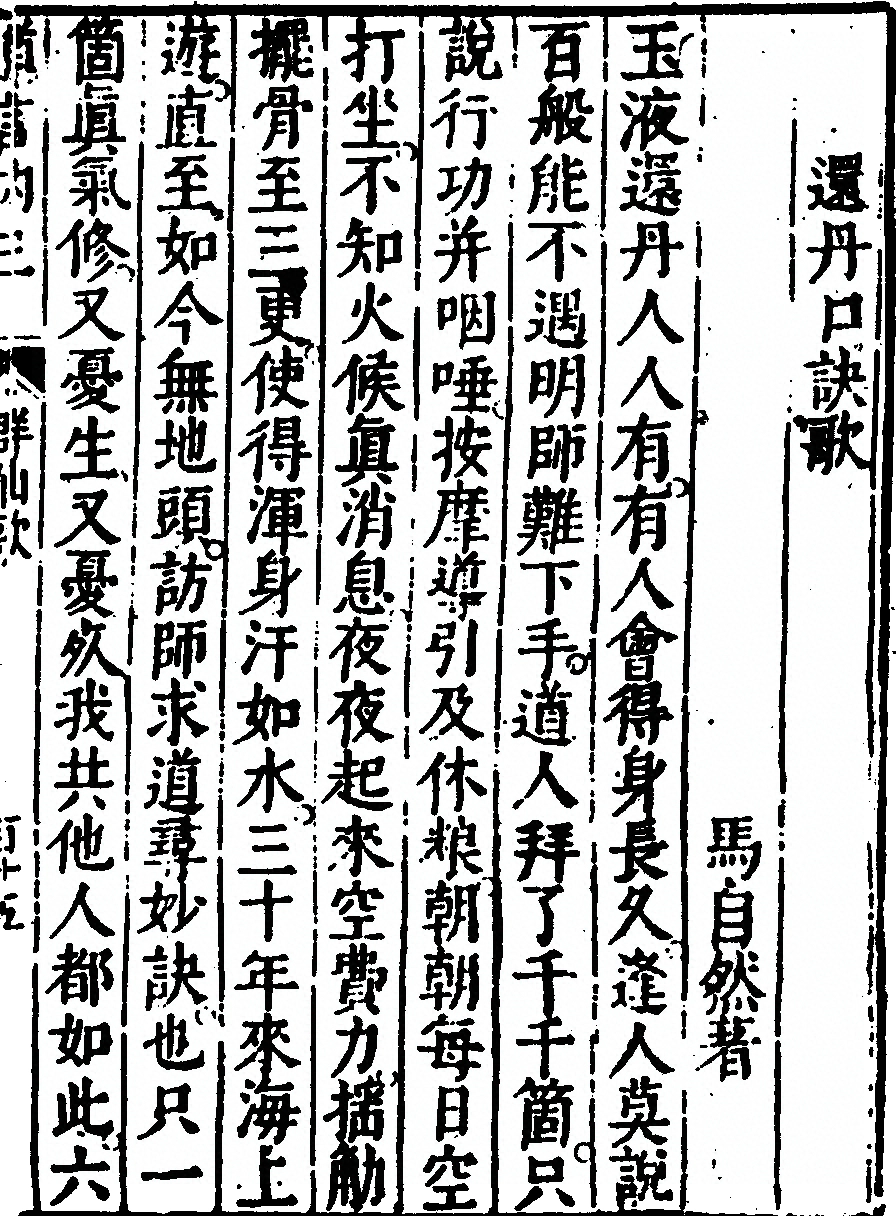 還丹口訣歌
馬自然著
玉液還丹人人有有人會得身長久逢人莫說
百般能不遇明師難下手道人拜了千千箇只
說行功并咽唾按摩導引及休粮朝朝每日空
打坐不知火候眞消息夜夜起來空費力揺觔
擺骨至三更使得渾身汗如水三十年來海上
遊直至如今無地頭訪師求道尋妙訣也只一
箇眞氣修又憂生又憂歿我共他人都如此六
群仙歌